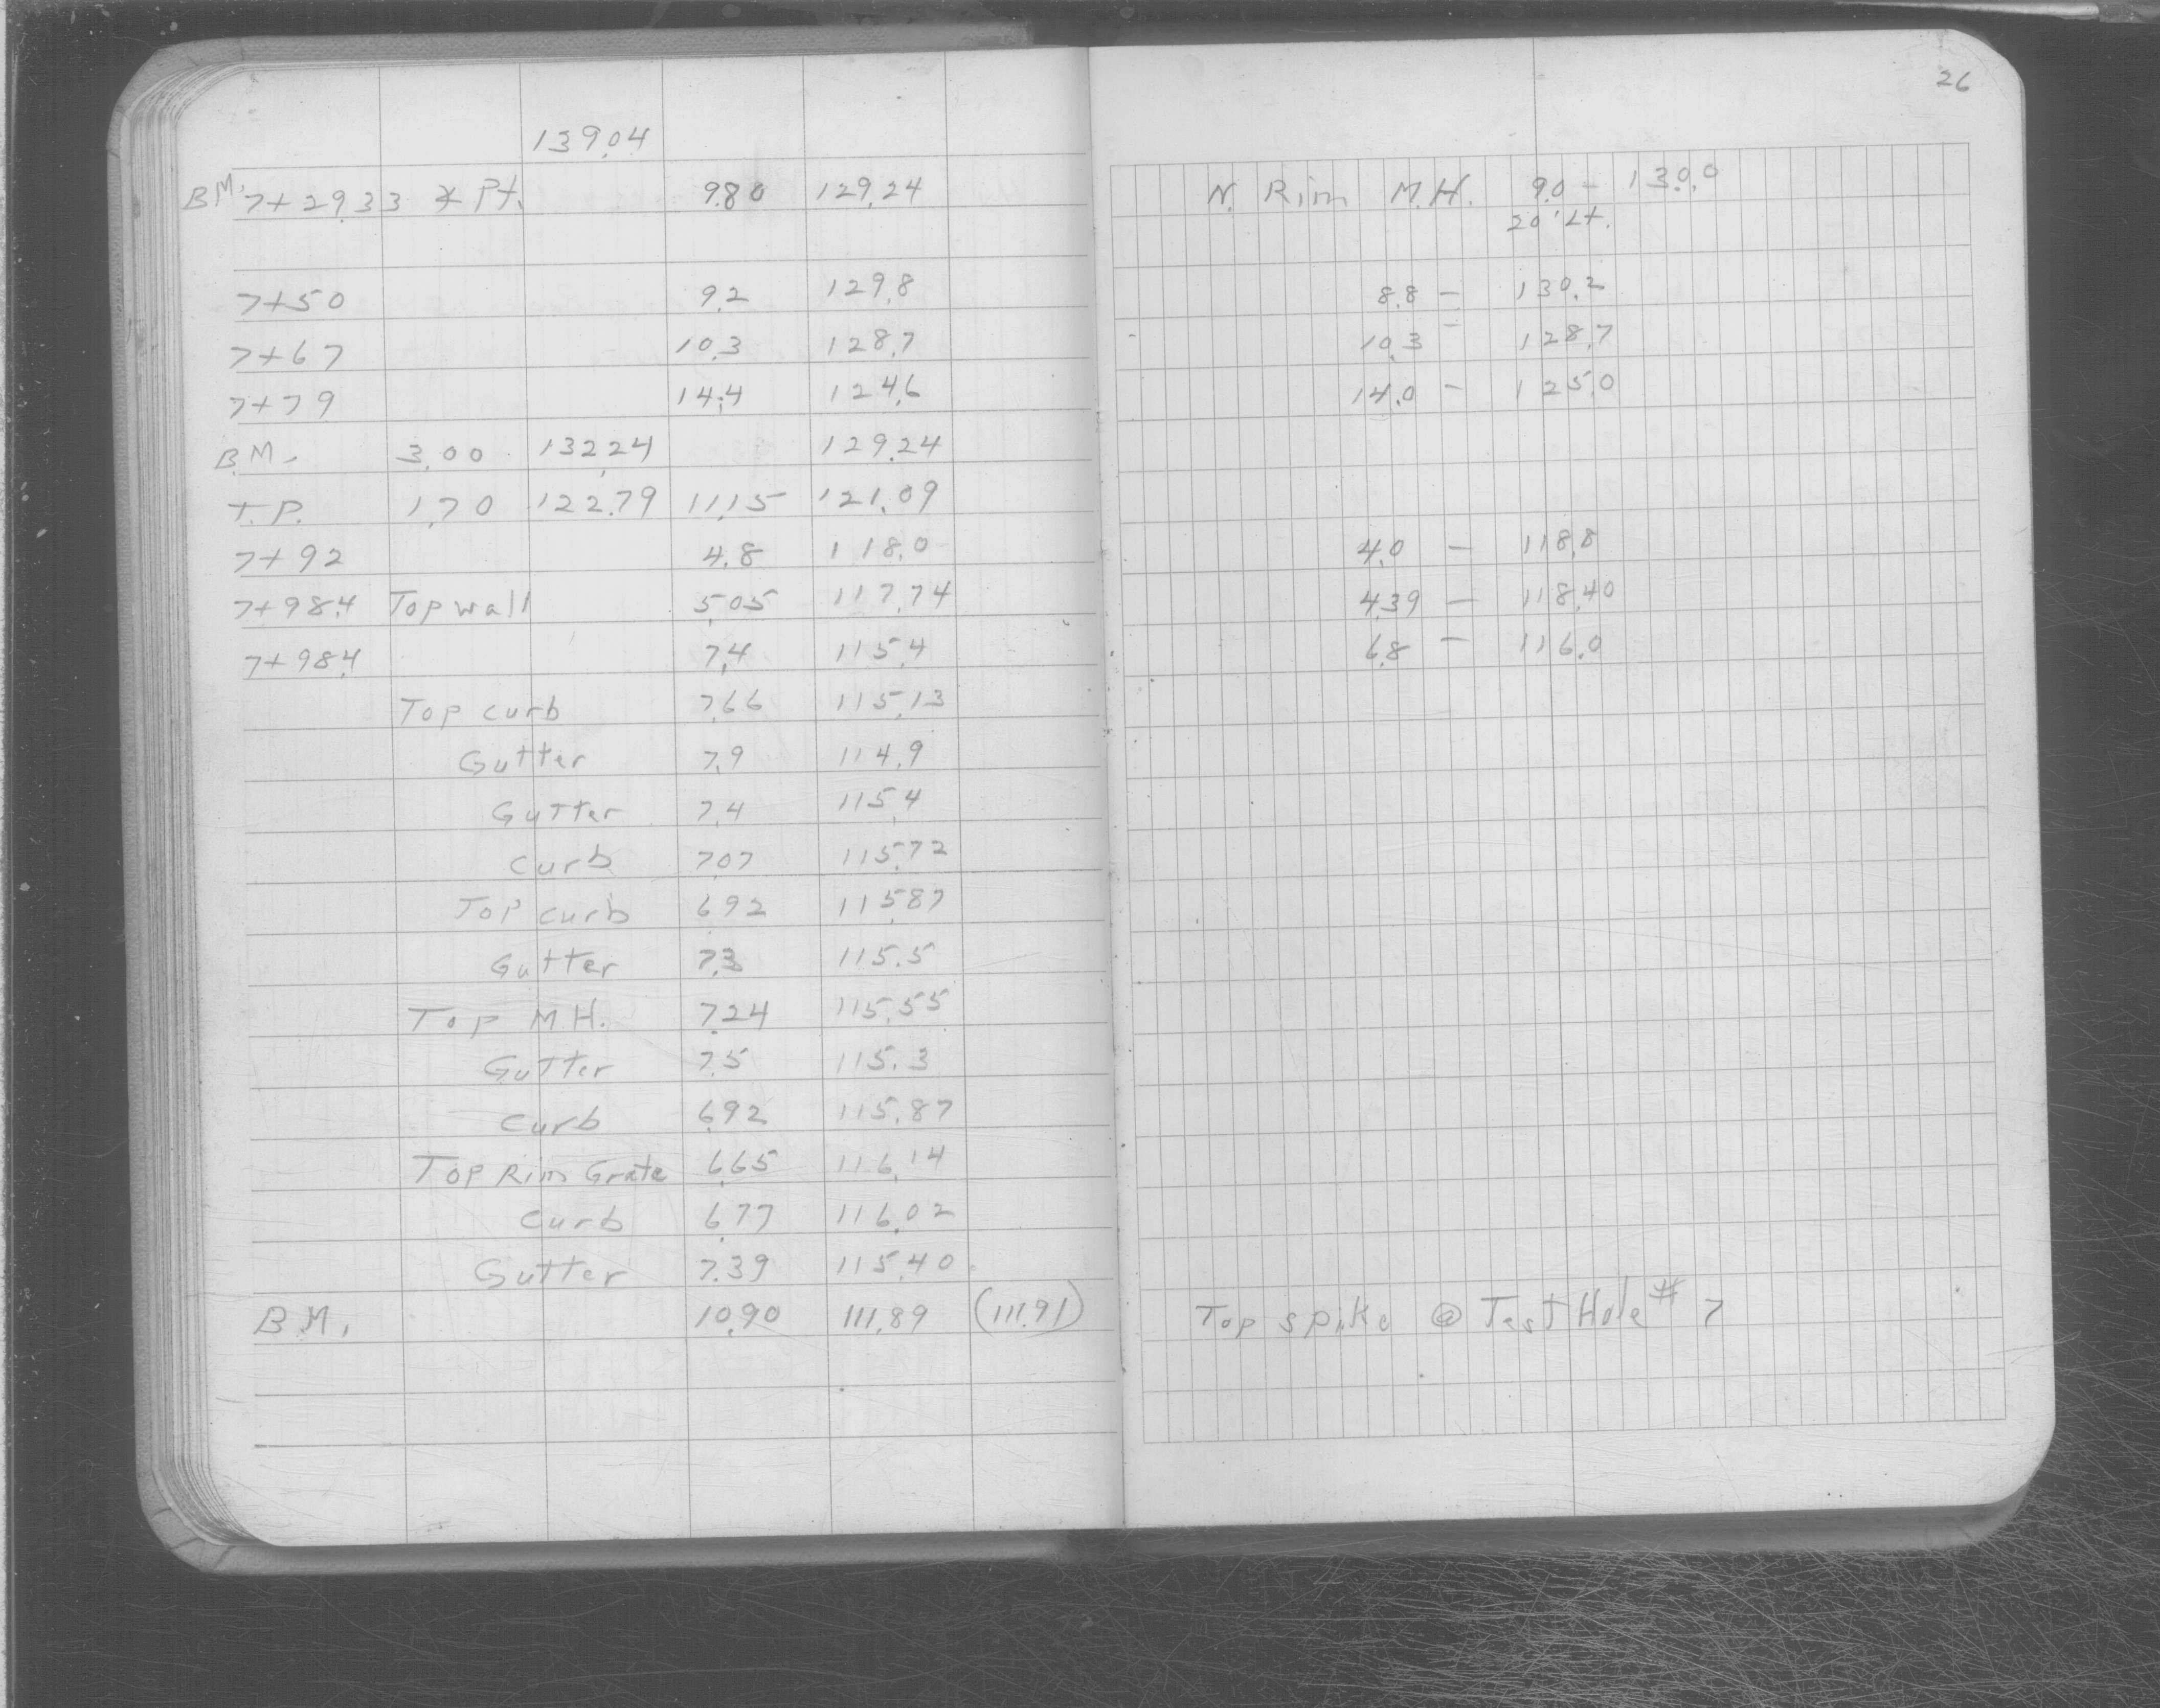 26
139.04
B.M. 7+29.33 ⊼ Pt. 9.80 129.24 N. Rim M.H. 9.0 - 130.0
20' Lt.
7+50 9.2 129.8 8.8 - 130.2
7+67 10.3 128.7 10.3 - 128.7
7+79 14.4 124.6 14.0 - 125.0
B.M. 3.00 132.24 129.24
T.P. 1.70 122.79 11.15 121.09
7+92 4.8 118.0 4.0 - 118.8
7+98.4 Top wall 5.05 117.74 4.39 - 118.40
7+98.4 7.4 115.4 6.8 - 116.0
Top curb 7.66 115.13
Gutter 7.9 114.9
Gutter 7.4 115.4
curb 7.07 115.72
Top curb 6.92 115.87
Gutter 7.3 115.5
Top M.H. 7.24 115.55
Gutter 7.5 115.3
curb 6.92 115.87
Top Rim Grate 6.65 116.14
curb 6.77 116.02
Gutter 7.39 115.40
B.M. 10.90 111.89 (111.91) Top spike @ Test Hole # 7